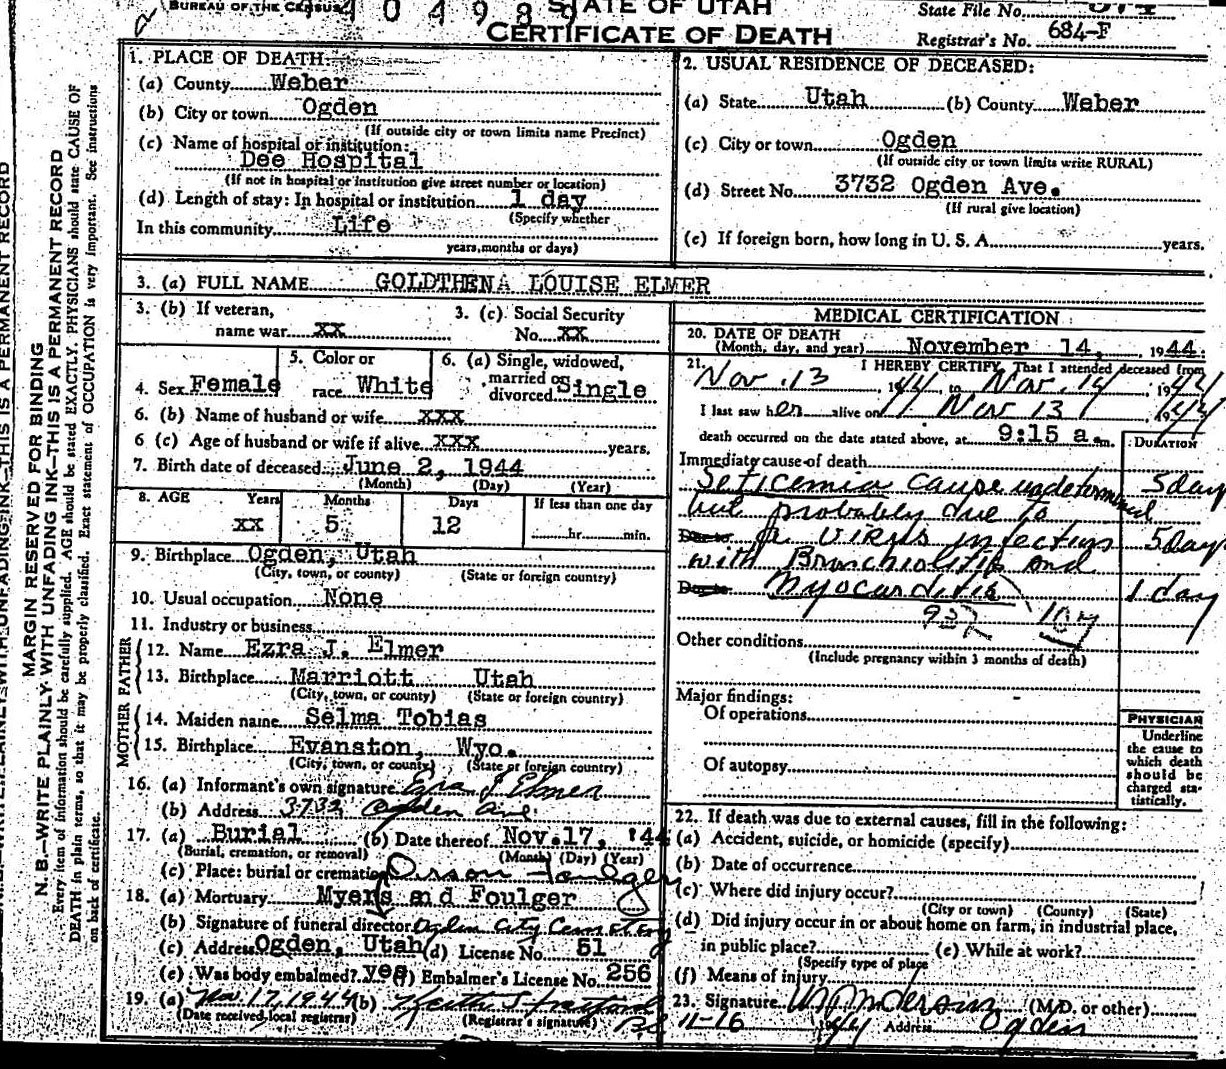 BUREAU OF THE CENSUS
STATE OF UTAH
CERTIFICATE OF DEATH
State File No.
Registrar's No. 684-F
MARGIN RESERVED FOR BINDING
N. B.—WRITE PLAINLY WITH UNFADING INK—THIS IS A PERMANENT RECORD
Every item of information should be carefully supplied. AGE should be stated EXACTLY. PHYSICIANS should state CAUSE OF
DEATH in plain terms, so that it may be properly classified. Exact statement of OCCUPATION is very important. See instructions
on back of certificate.
1. PLACE OF DEATH:
(a) County Weber
(b) City or town Ogden
(If outside city or town limits name Precinct)
(c) Name of hospital or institution:
Dee Hospital
(If not in hospital or institution give street number or location)
(d) Length of stay: In hospital or institution 1 day
(Specify whether
In this community Life
years, months or days)
2. USUAL RESIDENCE OF DECEASED:
(a) State Utah (b) County Weber
(c) City or town Ogden
(If outside city or town limits write RURAL)
(d) Street No. 3732 Ogden Ave.
(If rural give location)
(e) If foreign born, how long in U. S. A. years.
3. (a) FULL NAME GOLDTHENA LOUISE ELMER
3. (b) If veteran, 3. (c) Social Security
name war xx No. xx
5. Color or 6. (a) Single, widowed,
4. Sex Female race White married or divorced Single
6. (b) Name of husband or wife xxx
6 (c) Age of husband or wife if alive xxx years.
7. Birth date of deceased June 2, 1944
(Month) (Day) (Year)
8. AGE Years Months Days If less than one day
xx 5 12 hr. min.
9. Birthplace Ogden, Utah
(City, town, or county) (State or foreign country)
10. Usual occupation None
11. Industry or business
FATHER
12. Name Ezra J. Elmer
13. Birthplace Marriott Utah
(City, town, or county) (State or foreign country)
MOTHER
14. Maiden name Selma Tobias
15. Birthplace Evanston, Wyo.
(City, town, or county) (State or foreign country)
16. (a) Informant's own signature Ezra J Elmer
(b) Address 3732 Ogden Ave.
17. (a) Burial (b) Date thereof Nov. 17, '44
(Burial, cremation, or removal) (Month) (Day) (Year)
(c) Place: burial or cremation Orson Foulger
18. (a) Mortuary Myers and Foulger
(b) Signature of funeral director Ogden City Cemetery
(c) Address Ogden, Utah (d) License No. 51
(e) Was body embalmed? yes (f) Embalmer's License No. 256
19. (a) Nov. 17, 1944 (b) Keith
(Date received local registrar) (Registrar's signature)
MEDICAL CERTIFICATION
20. DATE OF DEATH
(Month, day, and year) November 14, 1944
21. I HEREBY CERTIFY, That I attended deceased from
Nov. 13 1944 to Nov. 14 1944
I last saw her alive on Nov 13 1944
death occurred on the date stated above, at 9:15 a.m. DURATION
Immediate cause of death
Septicemia cause undetermined 5 day
but probably due to
Due to a virus infection 5 days
with Bronchiolitis and
Due to Myocarditis 1 day
107
Other conditions
(Include pregnancy within 3 months of death)
Major findings:
Of operations
Of autopsy
PHYSICIAN
Underline
the cause to
which death
should be
charged sta-
tistically.
22. If death was due to external causes, fill in the following:
(a) Accident, suicide, or homicide (specify)
(b) Date of occurrence
(c) Where did injury occur?
(City or town) (County) (State)
(d) Did injury occur in or about home on farm, in industrial place,
in public place? (e) While at work?
(Specify type of place
(f) Means of injury
23. Signature (M.D. or other)
11-16 1944 Address Ogden